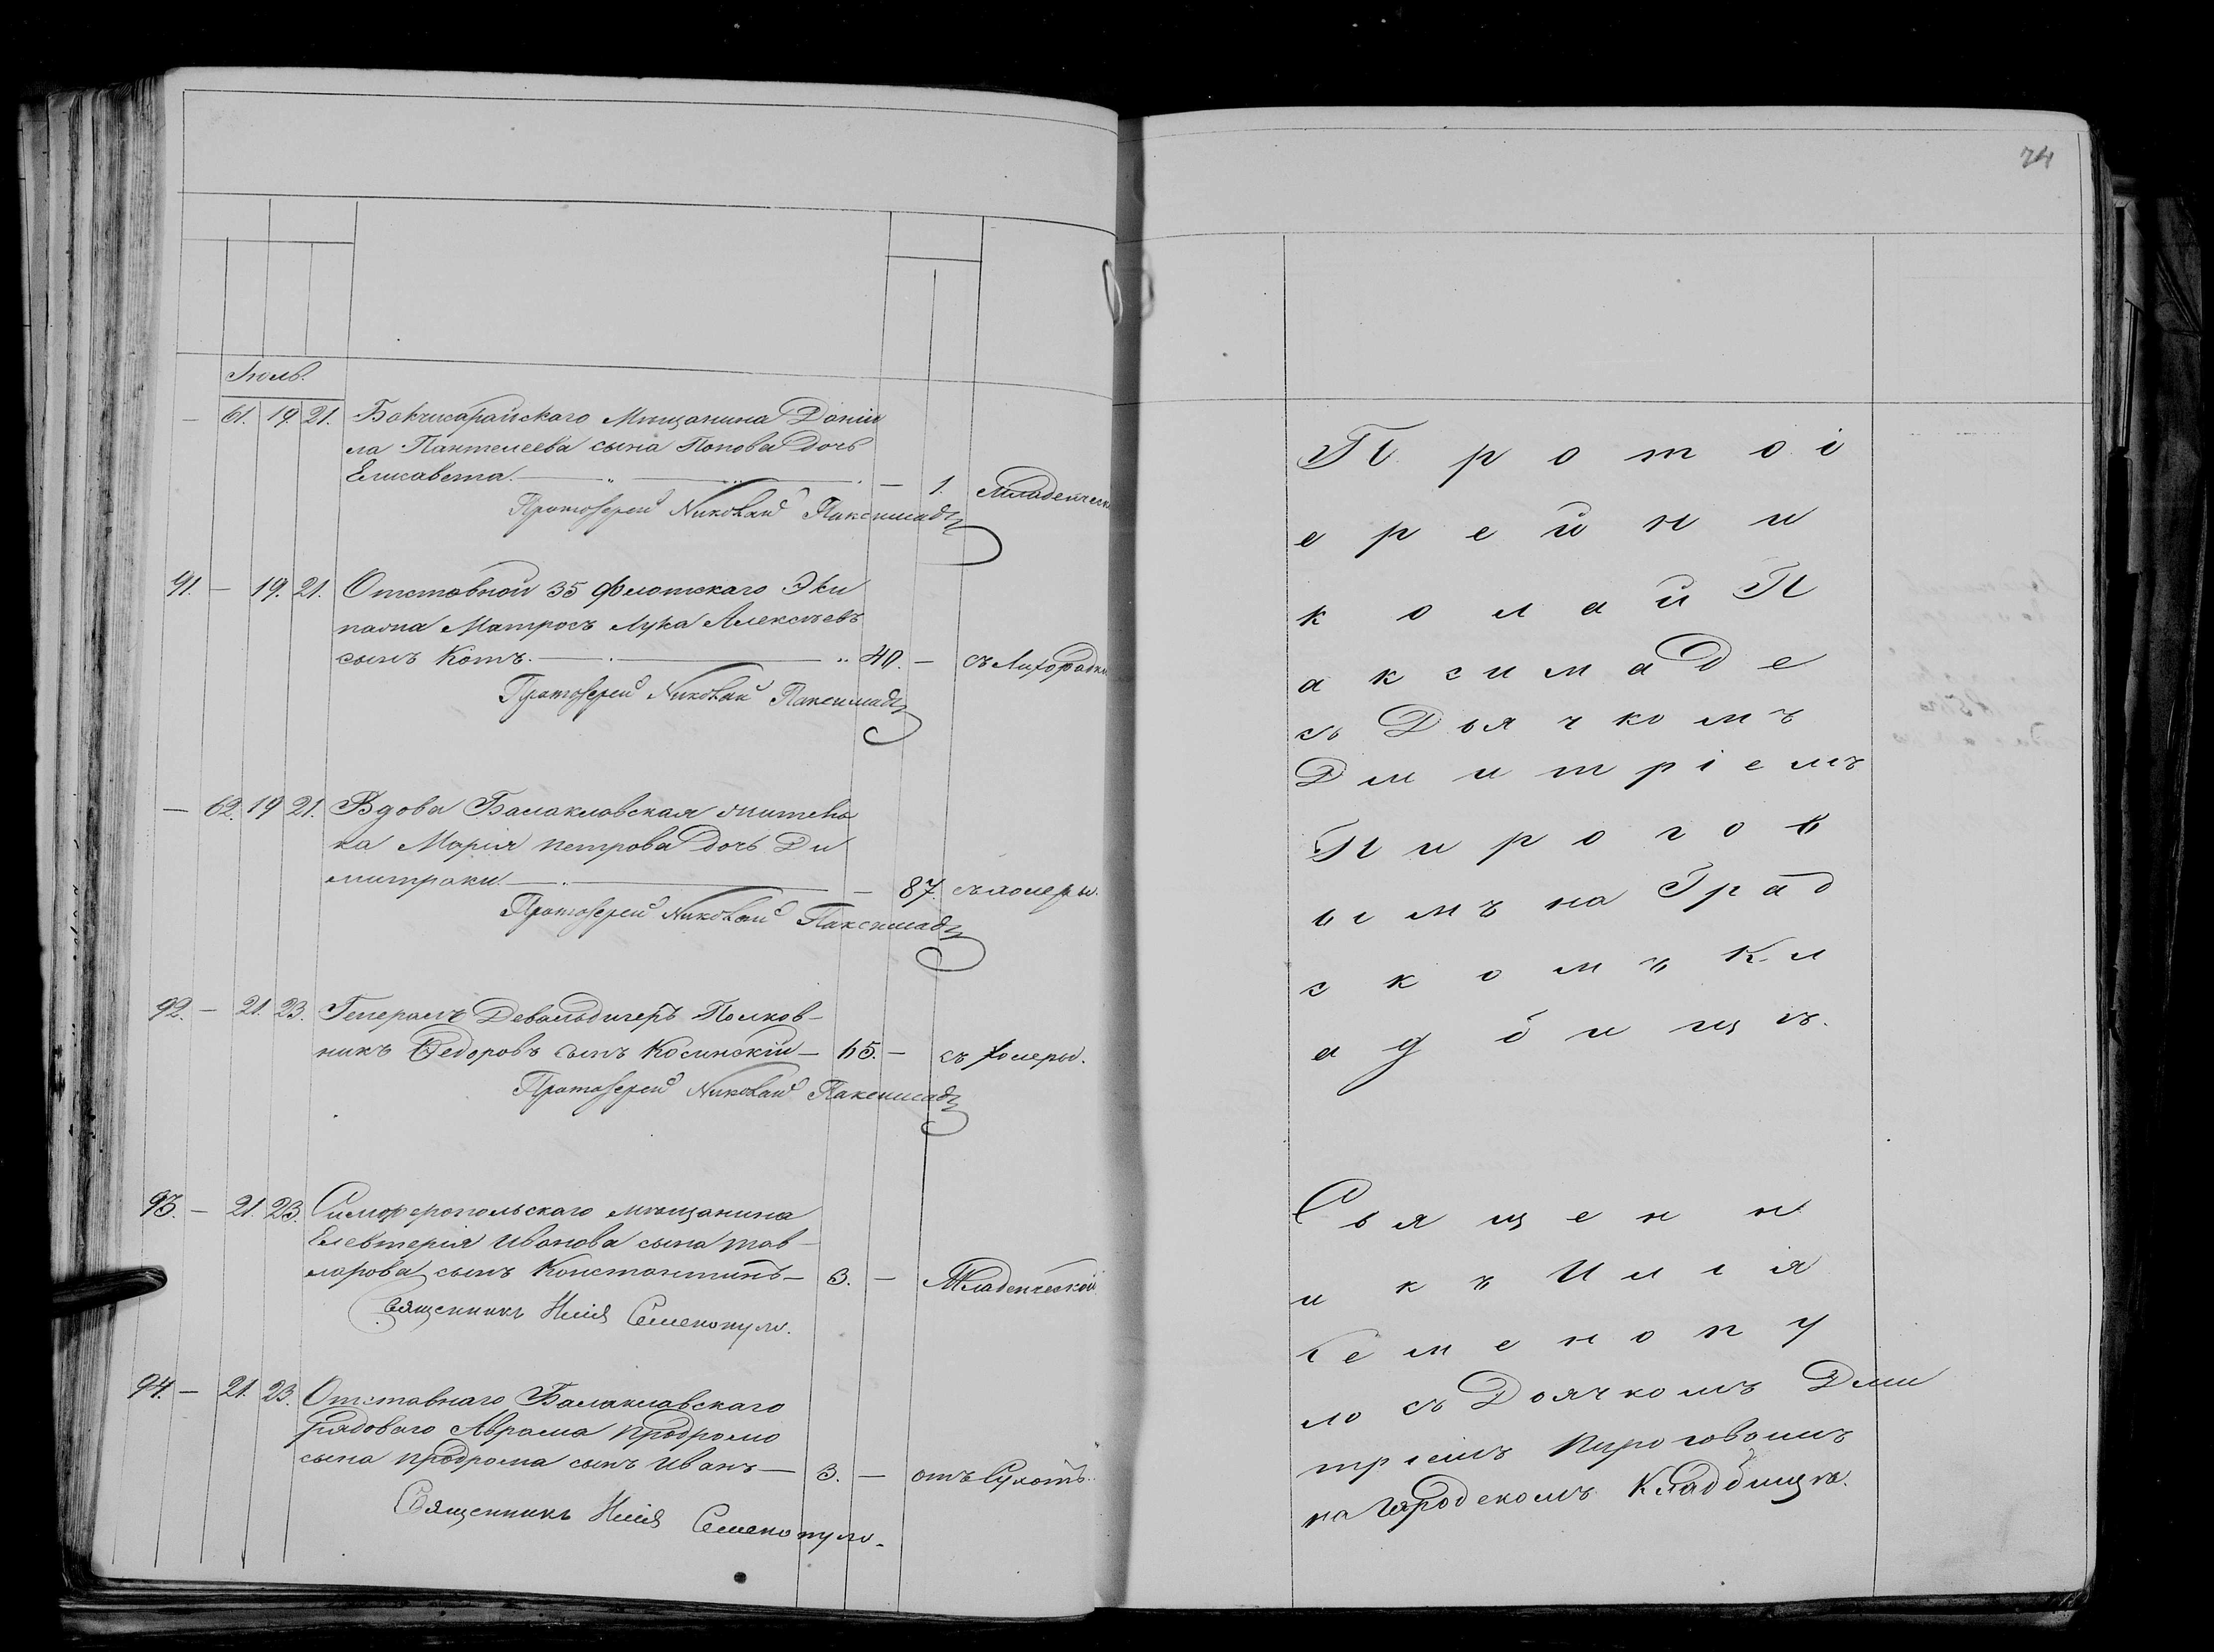 74
Іюль.
— 61. 19. 21. Бакчисарайскаго Мѣщанина Даніи
ла Пантелеева сына Попова дочь
Елисавета. — 1. Младенческ
Протоіерей Николай Паксимаде
91. — 19. 21. Отставной 35 флотскаго Эки
пажа Матросъ Лука Алексѣевъ
сынъ Котъ. — 40. — съ Лихорадки
Протоіерей Николай Паксимаде
— 62. 19 21. Вдова Балаклавская жителъ
ка Марія петрова дочь Ди
митраки. — 87. съ холеры.
Протоіерей Николай Паксимаде
92. — 21. 23. Генералъ Девальдигеръ Полков-
никъ Федоровъ сынъ Косинскій — 65. — съ холеры.
Протоіерей Николай Паксимаде
93. — 21. 23. Симферопольскаго мѣщанина
Елевтерія Иванова сына тав-
ларова сынъ Константинъ — 3. — Младенческой
Священникъ Илія Семенопуло.
94. — 21. 23. Отставнаго Балаклавскаго
рядоваго Аврама продромо
сына продрома сынъ Иванъ — 3. — отъ Сухотъ.
Священникъ Илія Семенопуло.
Протоі
ерей Ни
колай П
аксимаде
съ Дьячкомъ
Дмитріемъ
Пирогов
ымъ на Град
скомъ Кл
адбищѣ.
Священн
икъ Илія
Семенопу
ло съ Доячкомъ Дми
тріемъ Пироговымъ
на Городскомъ Кладбищѣ.